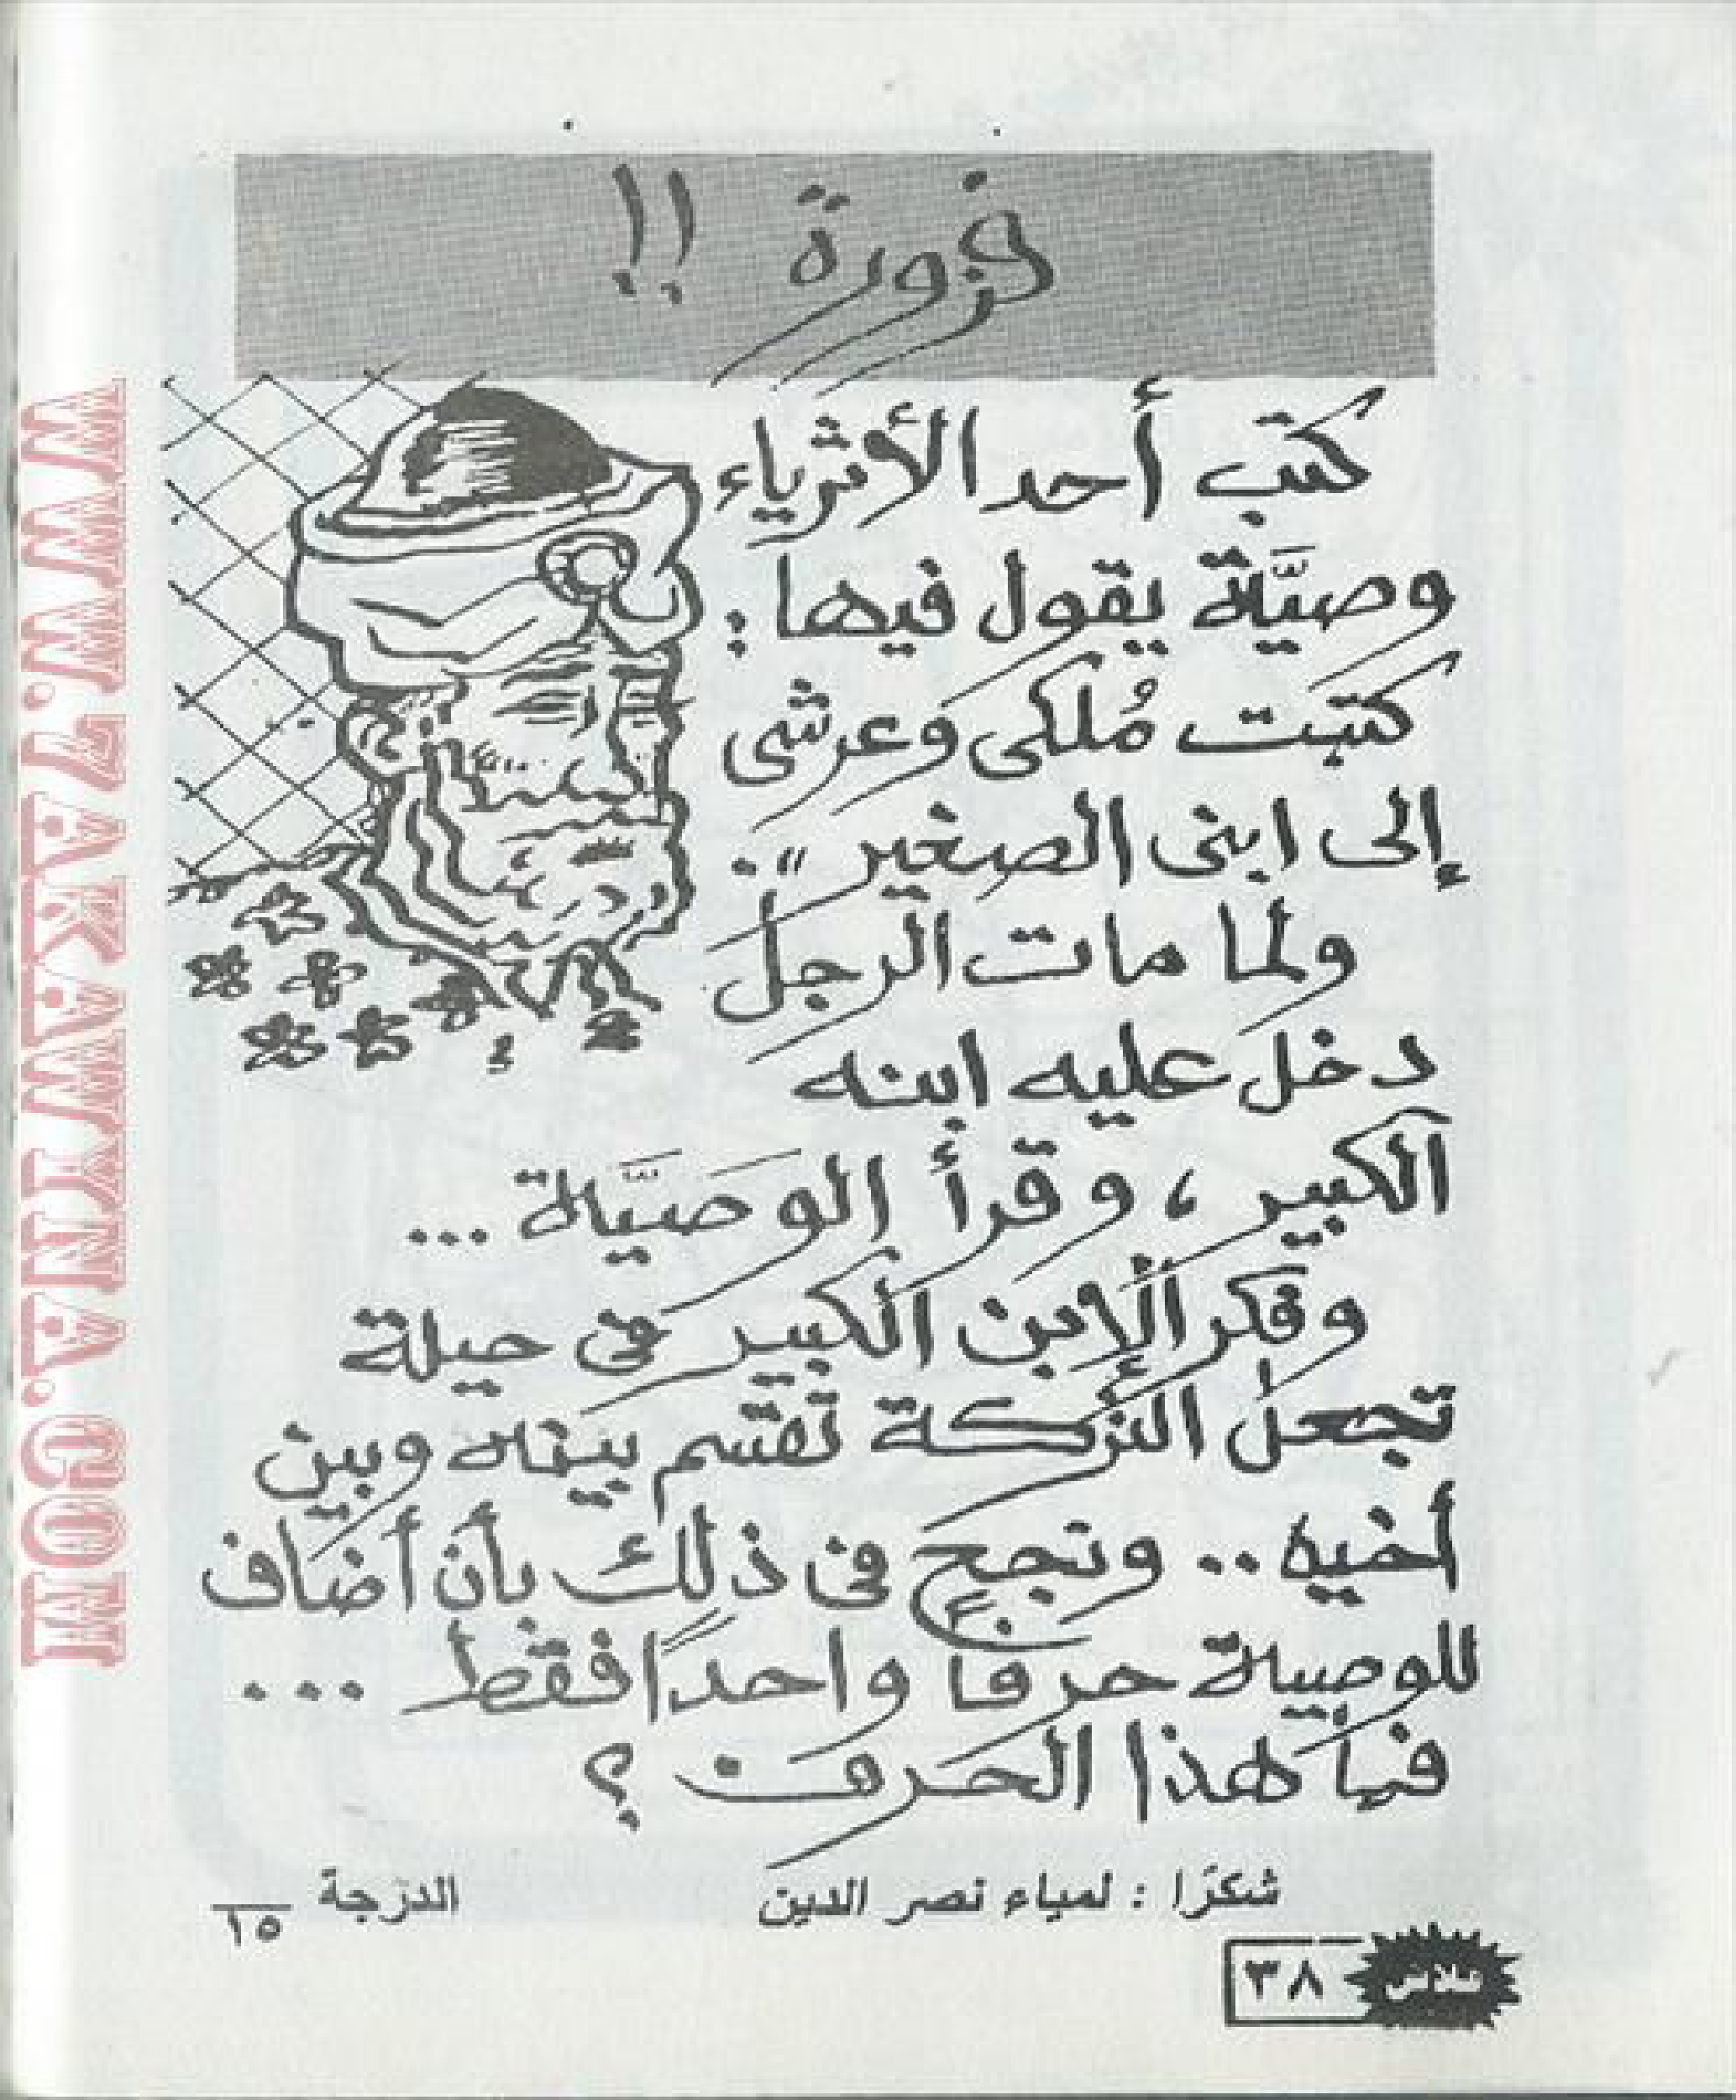 فزورة !!
كتب أحد الأثرياء
وصيَّة يقول فيها :
كتبت مُلكى وعرشى
إلى ابنى الصغير " .
ولما مات الرجل
دخل عليه ابنه
الكبير ، وقرأ الوصيَّة ...
وفكر الإبن الكبير فى حيلة
تجعل التركة تقسم بينه وبين
أخيه .. ونجح فى ذلك بأن أضاف
للوصية حرفاً واحداً فقط ...
فما هذا الحرف ؟
شكرًا : لمياء نصر الدين
الدرجة ١٥
٣٨
WWW.7AKAWITNA.COM